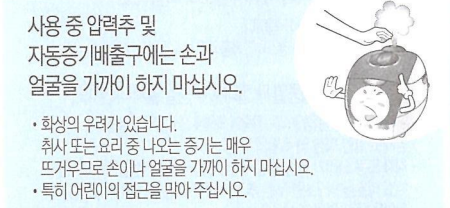 사용 중 압력추 및
자동증기배출구에는 손과
얼굴을 가까이 하지 마십시오.
• 화상의 우려가 있습니다.
취사 또는 요리 중 나오는 증기는 매우
뜨거우므로 손이나 얼굴을 가까이 하지 마십시오.
• 특히 어린이의 접근을 막아 주십시오.